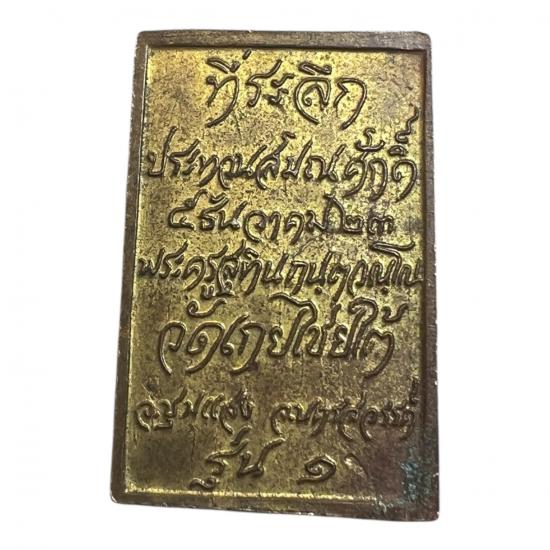 ที่ระลึก
ประทวนสมณศักดิ์
๕ ธันวาคม ๒๓
พระครูสุทิน
วัดเกยไชยใต้
อ.ชุมแสง จ.นครสวรรค์
รุ่น ๑